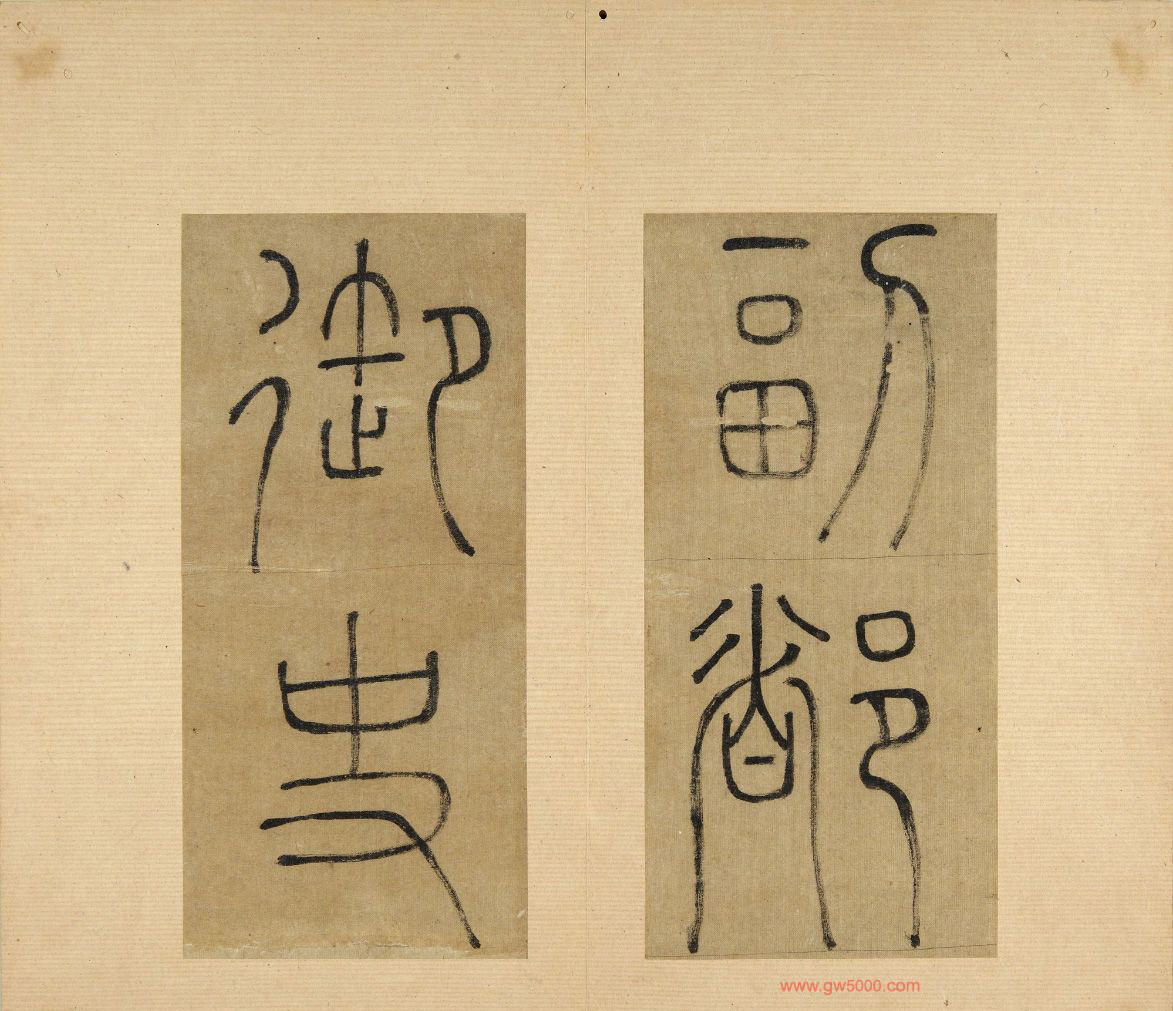 副都
御史
www.gw5000.com